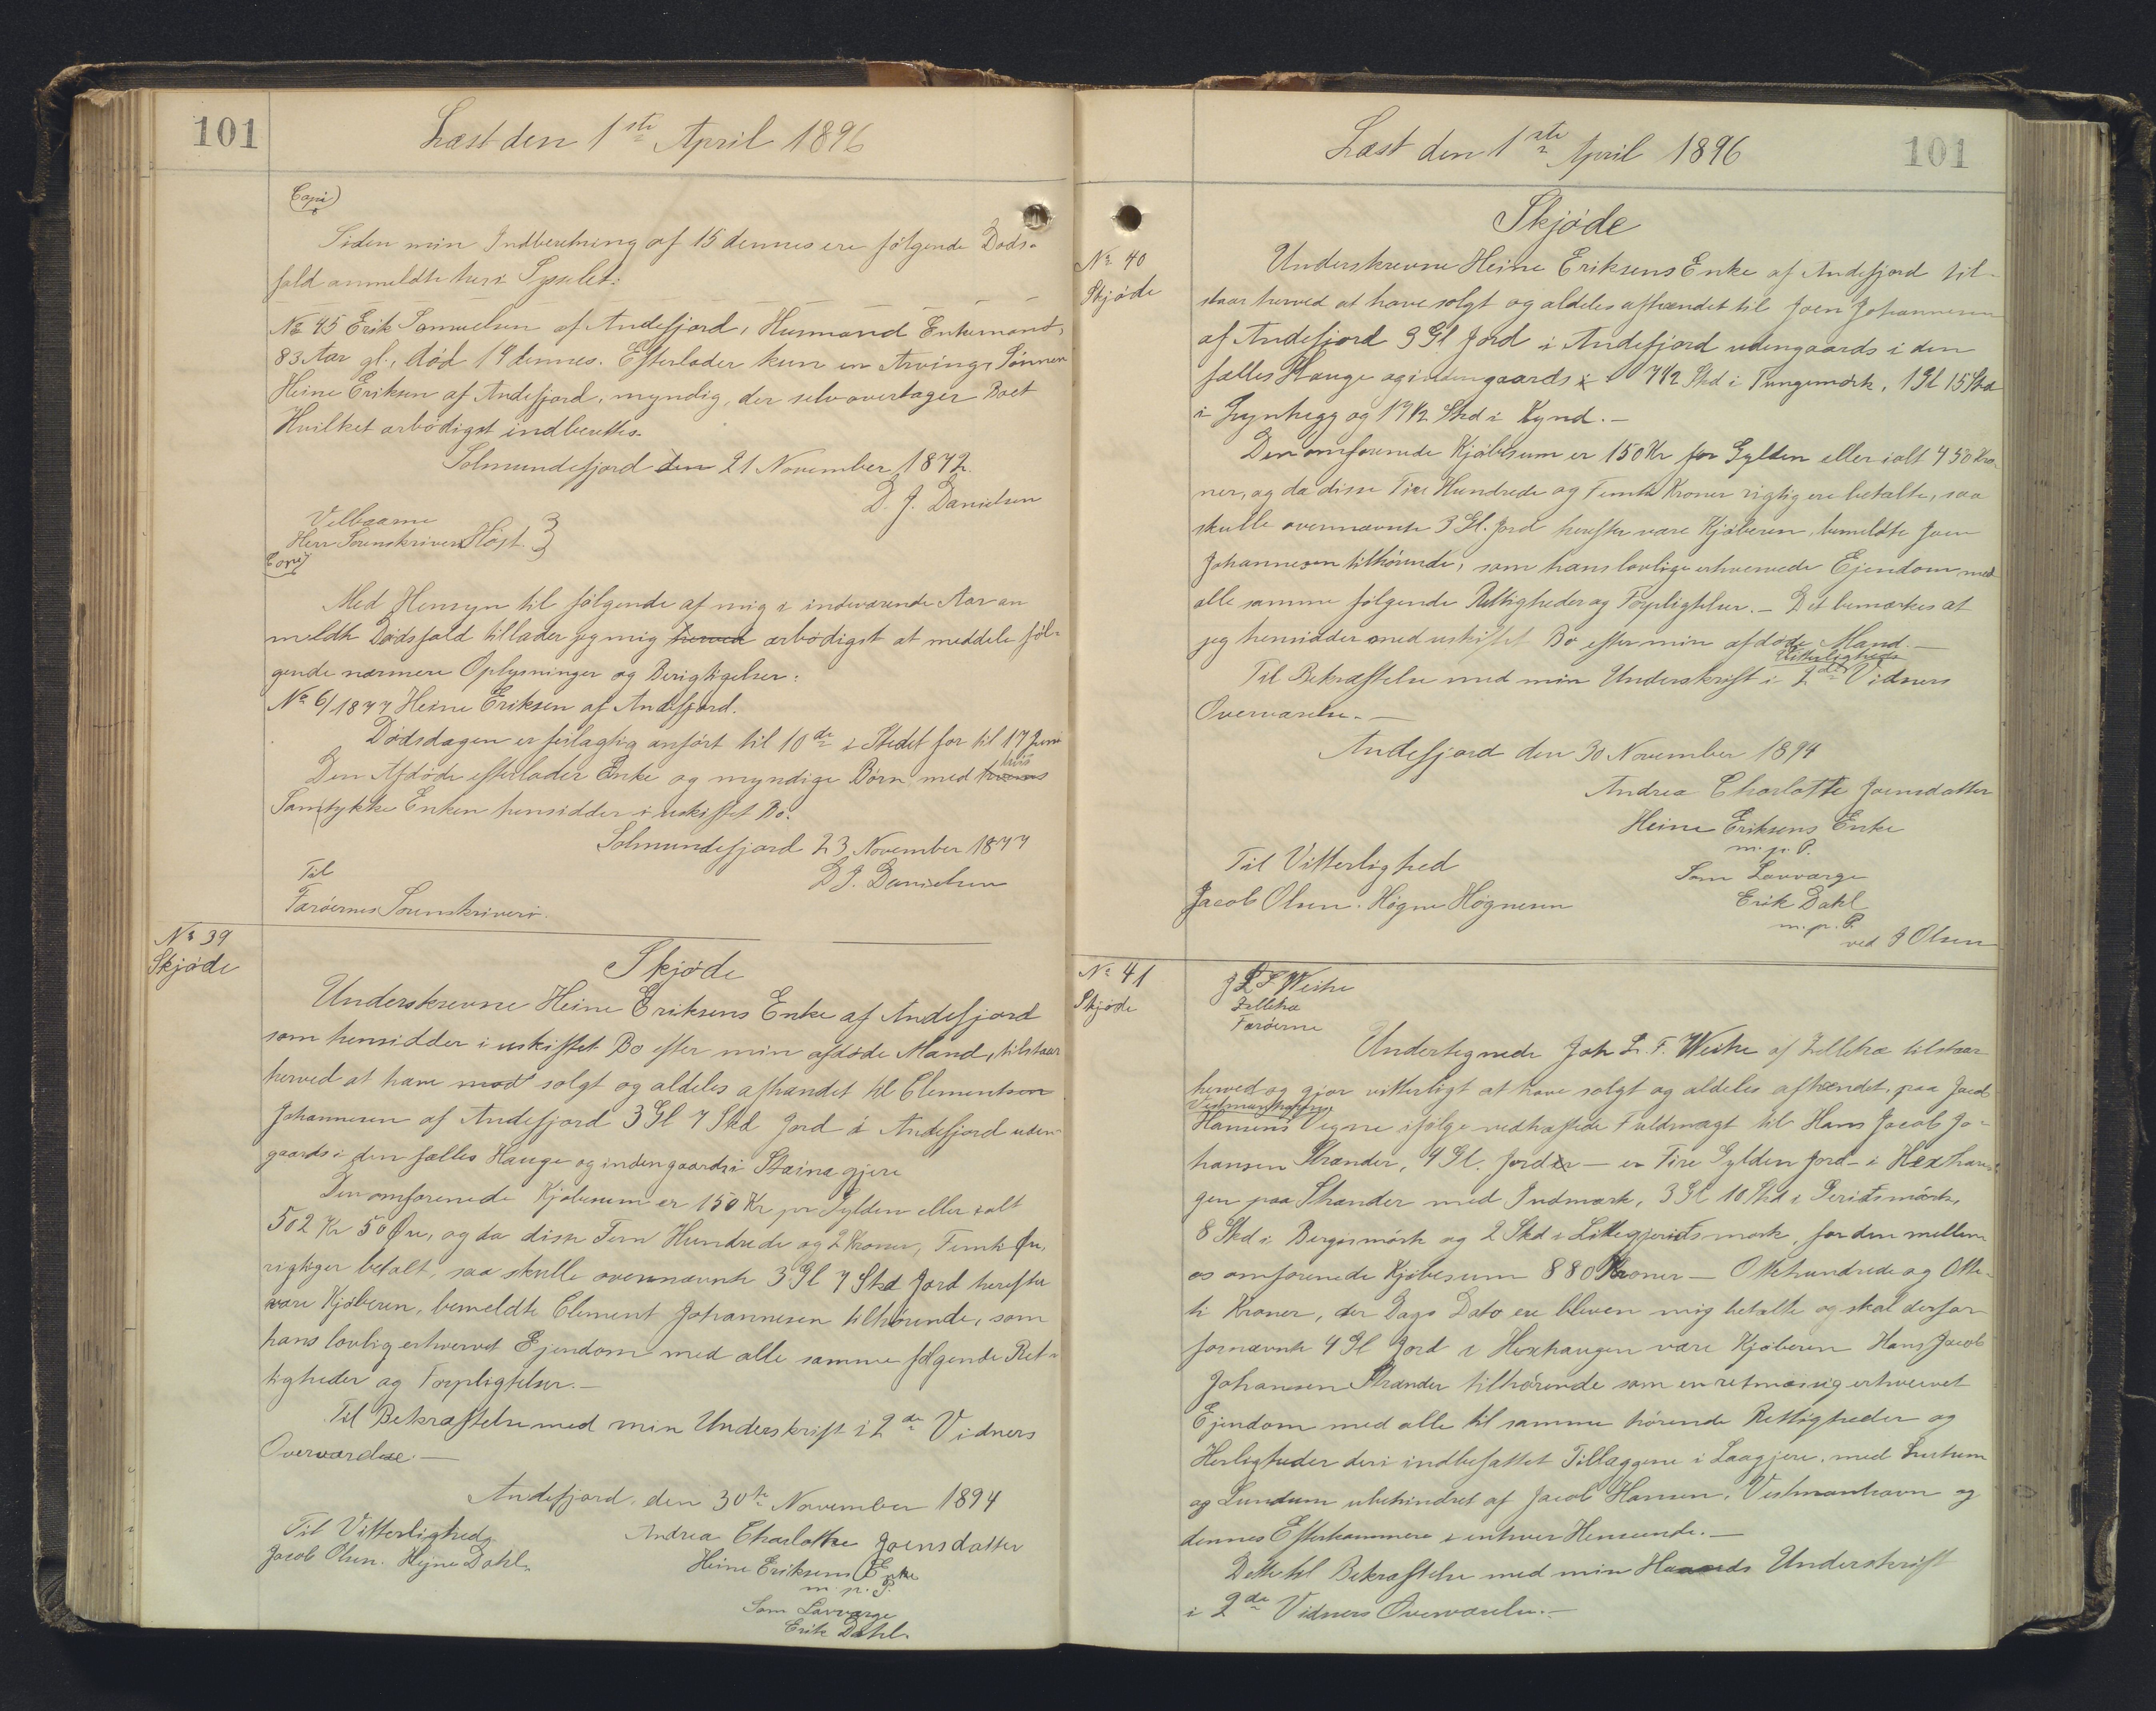 101
Læst den 1ste April 1896
Copi
Siden min Indberetning af 15 dennes ere følgende Døds-
fald anmeldte her i Sysselet:
No 45 Erik Samuelsen af Andefjord, Husmand Enkemand,
83 Aar gl., død 14 dennes. Efterlader kun en Arving, Sønnen
Heine Eriksen af Andefjord, myndig, der selv overtager Boet
Hvilket ærbødigst indberettes.
Solmundefjord den 21 November 1872.
D. J. Danielsen
Velbaarne
Herr Sorenskriver Høst
Copi
Med Hensyn til følgende af mig i indeværende Aar an
meldte Dødsfald tillader jeg mig herved ærbødigst at meddele føl-
gende nærmere Oplysninger og Berigtigelser:
No 6/1877 Heine Eriksen af Andefjord.
Dødsdagen er feilagtig anført til 10de i Stedet for til 17 Juni
Den Afdøde efterlader Enke og myndige Børn med hvis
Samtykke Enken hensidder i uskiftet Bo.
Solmundefjord 23 November 1877
D J. Danielsen
Til
Færøernes Sorenskriveri.
No 39
Skjøde
Skjøde
Underskrevne Heine Eriksens Enke af Andefjord
som hensidder i uskiftet Bo efter min afdøde Mand, tilstaar
herved at have med solgt og aldeles afhændet til Clementsen
Johannesen af Andefjord 3 Gl 7 Skd Jord i Andefjord uden-
gaards i den fælles Hauge og indengaards i Stainagjere
Den omforenede Kjøbesum er 150 Kr pr Gylden eller ialt
502 Kr 50 Øre, og da disse Fem Hundrede og 2 Kroner, Femti Øre,
rigtiger betalt, saa skulle ovennævnte 3 Gl 7 Skd Jord herefter
være Kjøberen, bemeldte Clement Johannesen tilhørende, som
hans lovlig erhvervet Ejendom med alle samme følgende Ret-
tigheder og Forpligtelser.-
Til Bekræftelse med min Underskrift i 2de Vidners
Overværelse.-
Andefjord, den 30te November 1894
Til Vitterlighed
Jacob Olsen. Hejne Dahl.
Andrea Charlotte Joensdatter
Heine Eriksens Enke
m. p. P.
Som Lavværge
Erik Dahl.
Læst den 1ste April 1896
101
Skjøde
No 40
Skjøde
Underskrevne Heine Eriksens Enke af Andefjord til-
staar herved at have solgt og aldeles afhændet til Joen Johannesen
af Andefjord 3 Gl Jord i Andefjord udengaards i den
fælles Hauge og indengaards i 7 1/2 Skd i Tungemørk, 1 Gl 15 Skd
i Lynhegg og 17 1/2 Skd i Kynd.-
Den omforenede Kjøbesum er 150 Kr for Gylden eller ialt 450 Kro-
ner, og da disse Fire Hundrede og Femti Kroner rigtig ere betalte, saa
skulle ovennævnte 3 Gl. Jord herefter være Kjøberen, bemeldte Joen
Johannesen tilhørende, som hans lovlige erhvervede Ejendom med
alle samme følgende Rettigheder og Forpligtelser.- Det bemærkes at
jeg hensidder med uskiftet Bo efter min afdøde Mand.-
Til Bekræftelse med min Underskrift i 2de Vitterligheds Vidners
Overværelse.-
Andefjord den 30 November 1894
Andrea Charlotte Joensdatter
Heine Eriksens Enke
m. p. P.
Til Vitterlighed
Jacob Olsen. Høgne Høgnesen
Som Lavværge
Erik Dahl
m. p. P.
ved J Olsen
No 41
Skjøde
J L F Weihe
Zellehæ
Færöerne
Undertegnede Joh L. F. Weihe af Zellehæ tilstaar
herved og gjør vitterligt at have solgt og aldeles afhændet, paa Jacob
Vestmanhavns
Hansens Vegne ifølge vedhæftede Fuldmagt til Hans Jacob Jo-
hansen Strænder, 4 Gl. Jord - er Fire Gylden Jord - i Hexhau-
gen paa Strænder med Indmark, 3 Gl 10 Skd i Geridsmørk,
8 Skd i Bergasmørk og 2 Skd i Litlegjeridsmørk, for den mellem
os omforenede Kjøbesum 880 Kroner - Ottehundrede og Otte-
ti Kroner, der Dags Dato ere bleven mig betalte og skal derfor
fornævnte 4 Gl Jord i Hexhaugen være Kjøberen Hans Jacob
Johansen Strænder tilhørende som en retmæssig erhvervet
Ejendom med alle til samme hørende Rettigheder og
Herligheder deri indbefattet Tillæggene i Laagjere, med Lustum
og Lundum ubehindret af Jacob Hansen, Vestmanhavn og
dennes Efterkommere i enhver Henseende.-
Dette til Bekræftelse med min Haands Underskrift
i 2de Vidners Overværelse.-